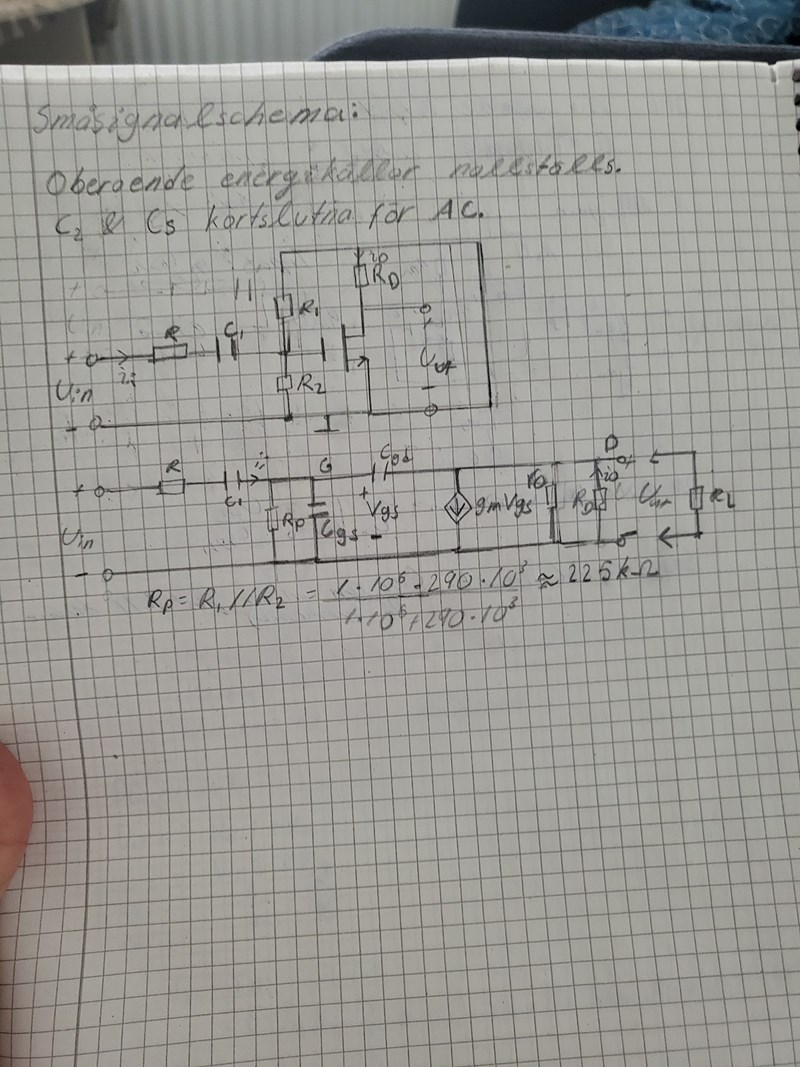 Småsignalschema:
Oberoende energikällor nollställs.
C₂ & Cs kortslutna för AC.
iD
RD
R₁
+ R C₁ +
Uin
Uut
R₂
-
-
D
R G Cgd
+ C₁ + ro iD +
Rp Cgs Vgs gmVgs RD Uut RL
Uin
-
-
Rp = R₁//R₂ = 1·10⁶·290·10³ ≈ 225kΩ
1·10⁶+290·10³